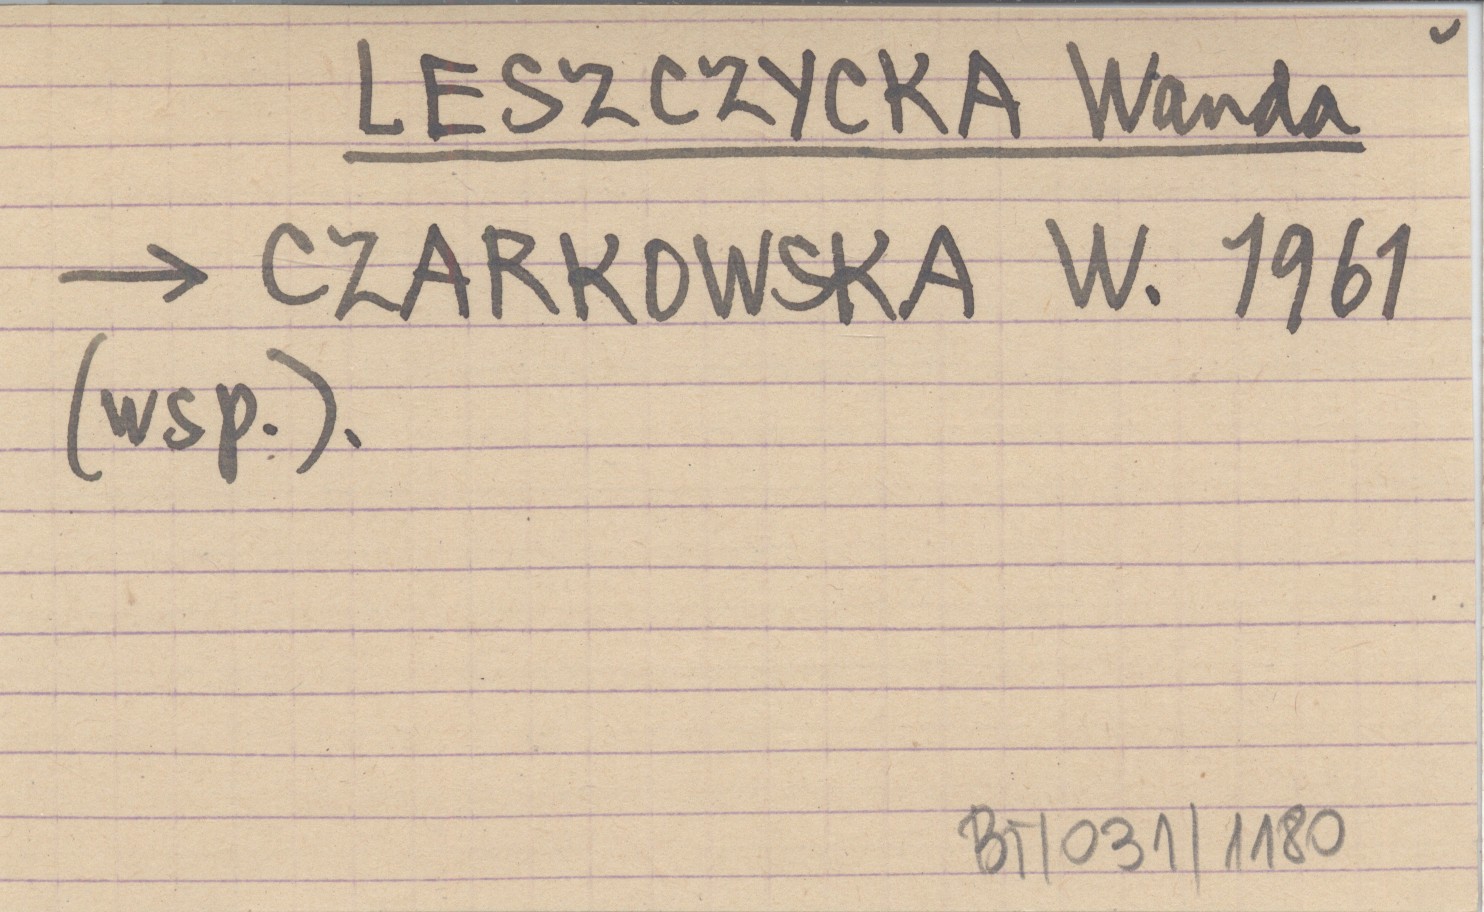 LESZCZYCKA Wanda
→ CZARKOWSKA W. 1961
(wsp.).
BT/031/1180